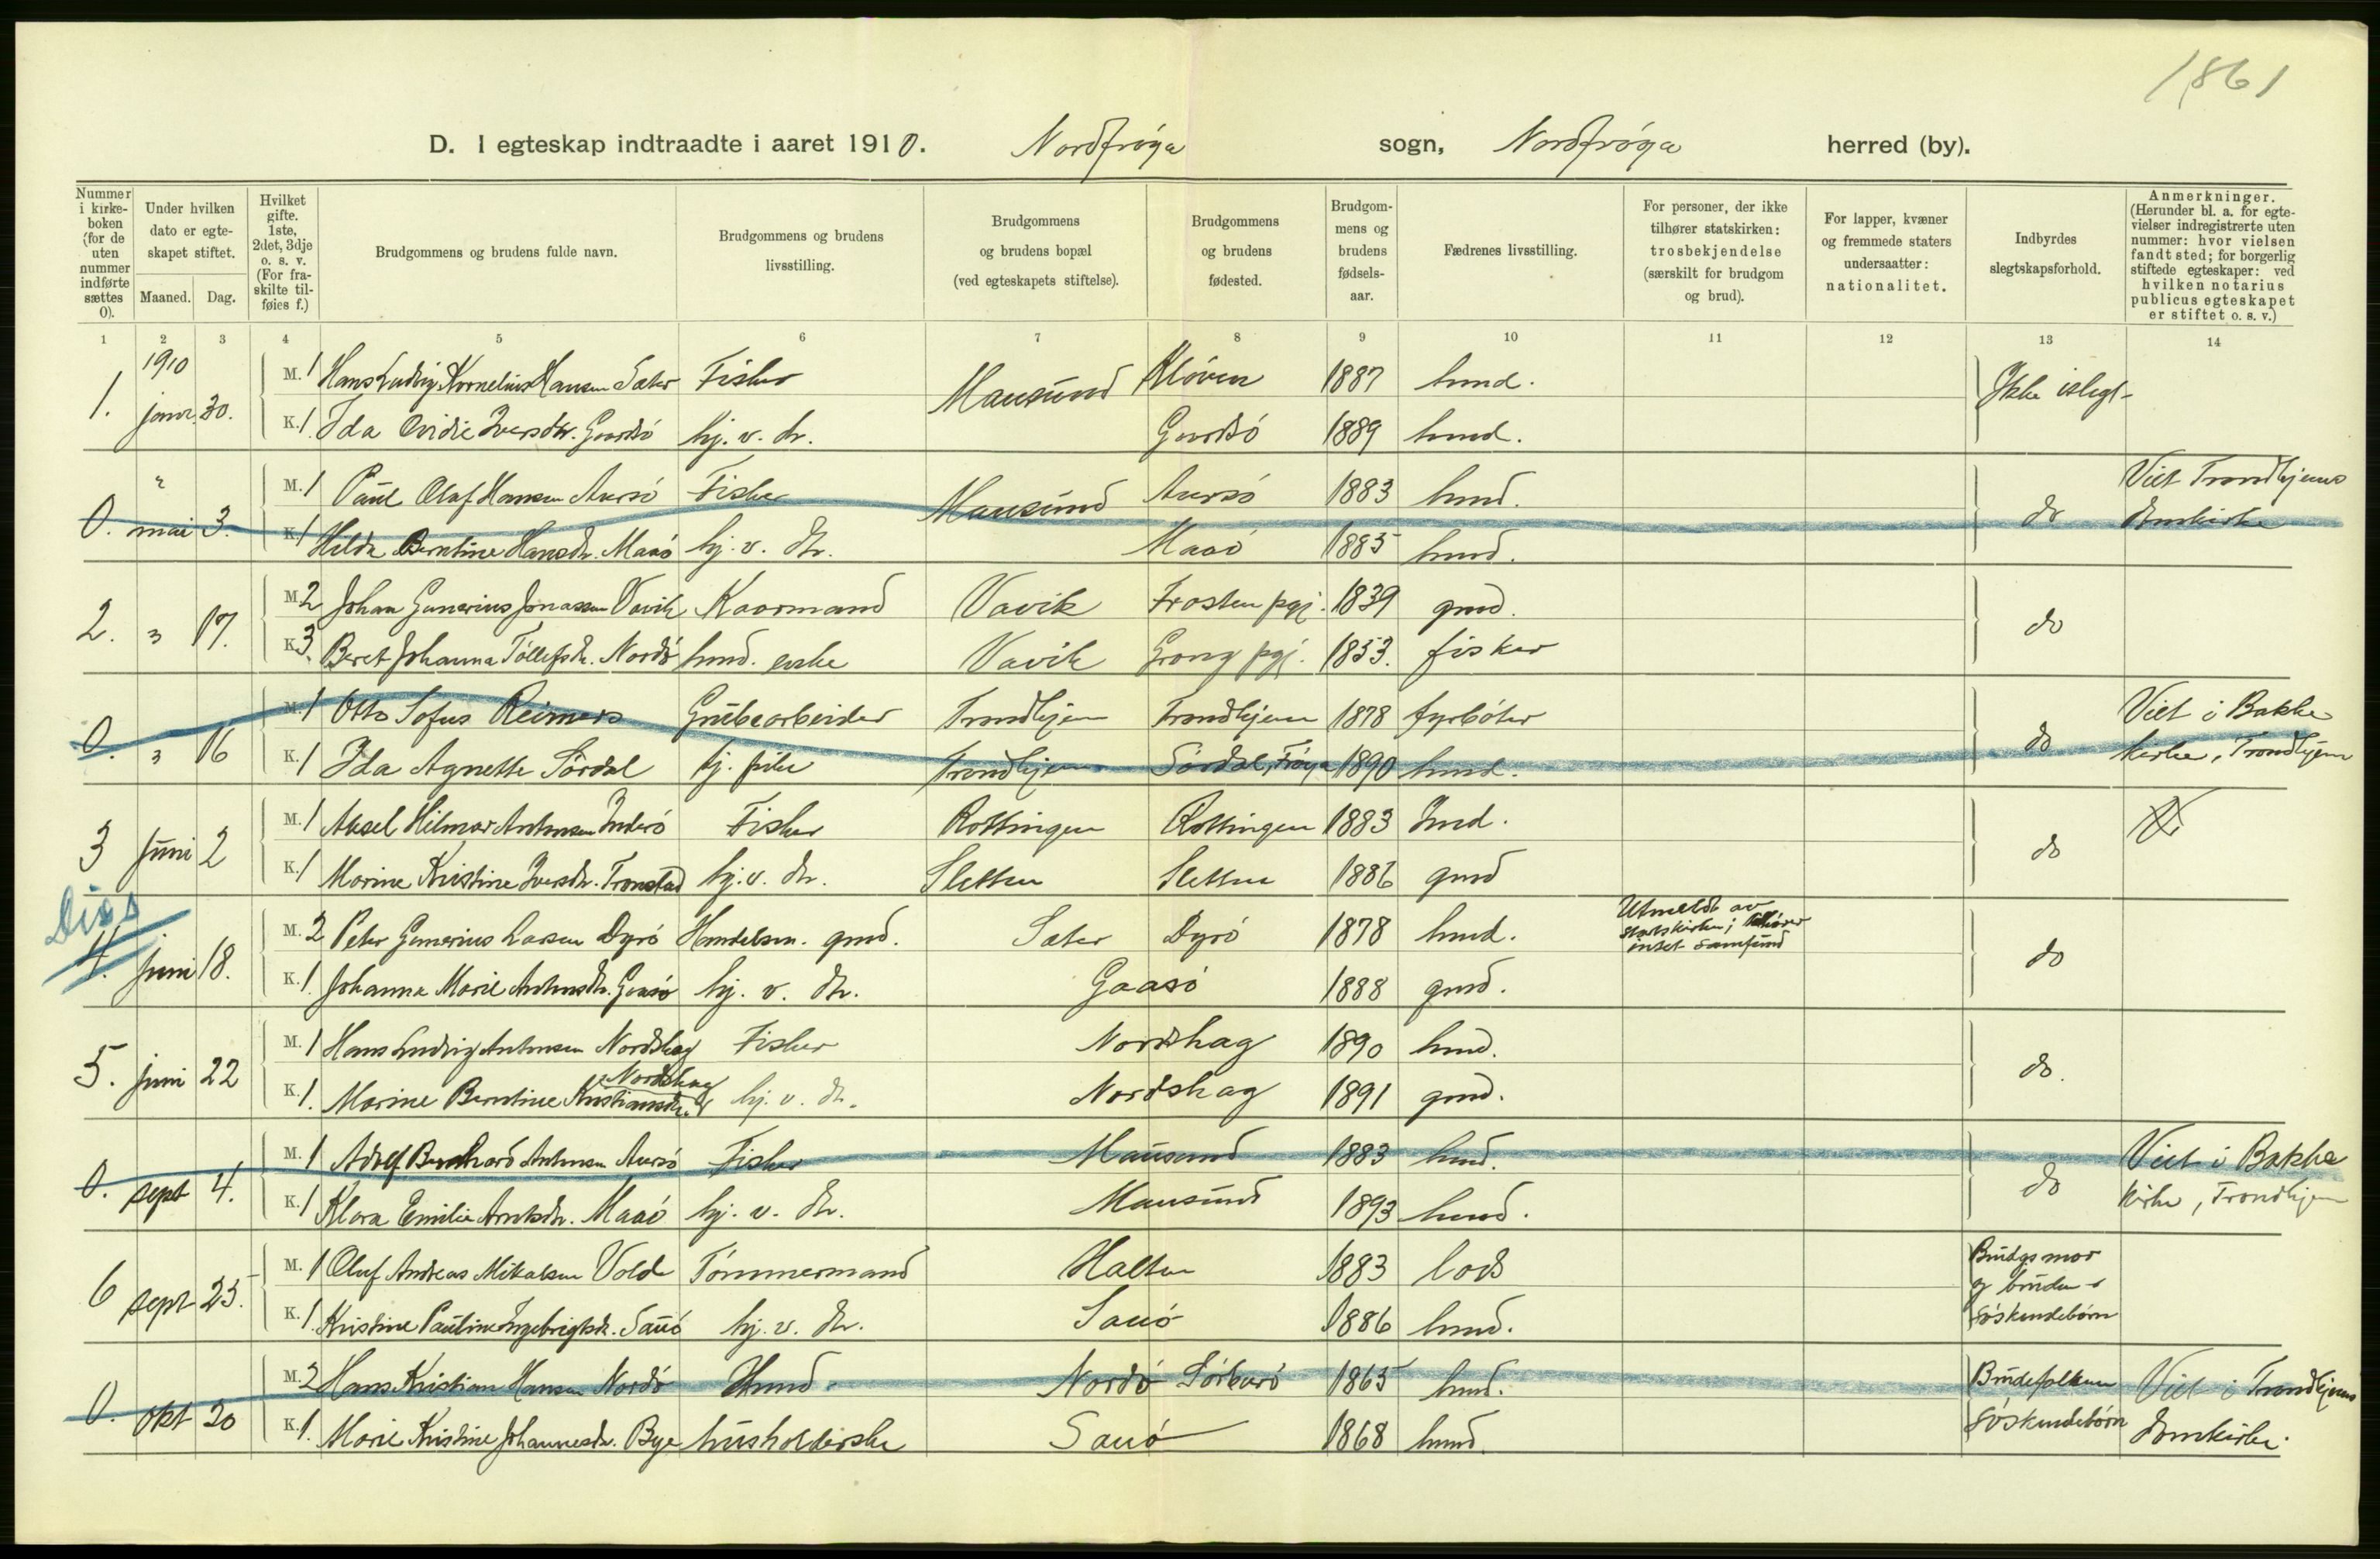 1861
D. I egteskap indtraadte i aaret 1910. Nordfrøya sogn, Nordfrøya herred (by).
Nummer i kirke-boken (for de uten nummer indførte sættes 0).
Under hvilken dato er egte-skapet stiftet.
Maaned. Dag.
Hvilket gifte. 1ste, 2det, 3dje o. s. v. (For fra-skilte til-føies f.)
Brudgommens og brudens fulde navn.
Brudgommens og brudens livsstilling.
Brudgommens og brudens bopæl (ved egteskapets stiftelse).
Brudgommens og brudens fødested.
Brudgom-mens og brudens fødsels-aar.
Fædrenes livsstilling.
For personer, der ikke tilhører statskirken: trosbekjendelse (særskilt for brudgom og brud).
For lapper, kvæner og fremmede staters undersaatter: nationalitet.
Indbyrdes slegtskapsforhold.
Anmerkninger. (Herunder bl. a. for egte-vielser indregistrerte uten nummer: hvor vielsen fandt sted; for borgerlig stiftede egteskaper: ved hvilken notarius publicus egteskapet er stiftet o. s. v.)
1 2 3 4 5 6 7 8 9 10 11 12 13 14
1910
1. janr. 30. M. 1 Hans Ludvig Kornelius Hansen Sæter Fisker Mausund Kløven 1887 husmd. Ikke i slegt
K. 1. Ida Ovidie Iversdtr. Gaardsø hj. v. dr. Gaardsø 1889 husmd.
0. mai 3. M. 1 Paul Olaf Hansen Aursø Fisker Mausund Aursø 1883 husmd. do Viet Trondhjems
K. 1 Hilda Berntine Hansdr. Maaø hj. v. dr. Maaø 1885 husmd. domkirke
2. " 17. M. 2 Johan Gunerius Jonassen Vavik Kaarmand Vavik Frosten pgj. 1839 gmd. do
K. 3. Beret Johanna Tollefsdr. Nordø husmd. enke Vavik Grong pgj. 1853. fisker
0. " 16 M. 1 Otto Sofus Reimers Grubearbeider Trondhjem Trondhjem 1878 fyrbøter do Viet i Bakke
K. 1 Ida Agnette Sørdal tj. pike Trondhjem Sørdal, Frøya 1890 husmd. kirke, Trondhjem
3 Juni 2 M. 1 Aksel Hilmar Antonsen Inderø Fisker Rottingen Rottingen 1883 Husmd. do
K. 1 Marine Kristine Iversdr. Tronstad hj. v. dr. Sletten Sletten 1886 gmd
Diss
4. juni 18. M. 2 Peter Gunerius Larsen Dyrø Handelsm. gmd. Sæter Dyrø 1878 husmd. Utmeldt av statskirken; tilhører intet samfund do
K. 1. Johanna Marie Antonsdr. Gaasø hj. v. dr. Gaasø 1888 gmd.
5. juni 22 M. 1 Hans Ludvig Antonsen Nordskag Fisker Nordskag 1890 husmd. do.
K. 1. Marine Berntine Kristiansdr. Nordskag hj. v. dr. Nordskag 1891 gmd.
0. sept 4. M. 1 Adolf Bernhard Antonsen Aursø Fisker Mausund 1883 husmd. do Viet i Bakke
K. 1 Klara Emilie Arntsdr. Maaø hj. v. dr. Mausund 1893 husmd. kirke, Trondhjem
6 sept 25. M. 1 Oluf Andreas Mikalsen Volde Tømmermand Halten 1883 lods Brudgs mor og bruden søskendebørn
K. 1. Kristine Pauline Ingebrigtsdr. Sauø hj. v. dr. Sauø 1886 husmd.
0. okt 20 M. 2 Hans Kristian Hansen Nordø Husmd. Nordø Sørburø 1865 husmd. Brudefolkene søskendebørn Viet i Trondhjems
K. 1. Marie Kristine Johannesdr. Bye husholderske Sauø 1868 husmd. domkirke.